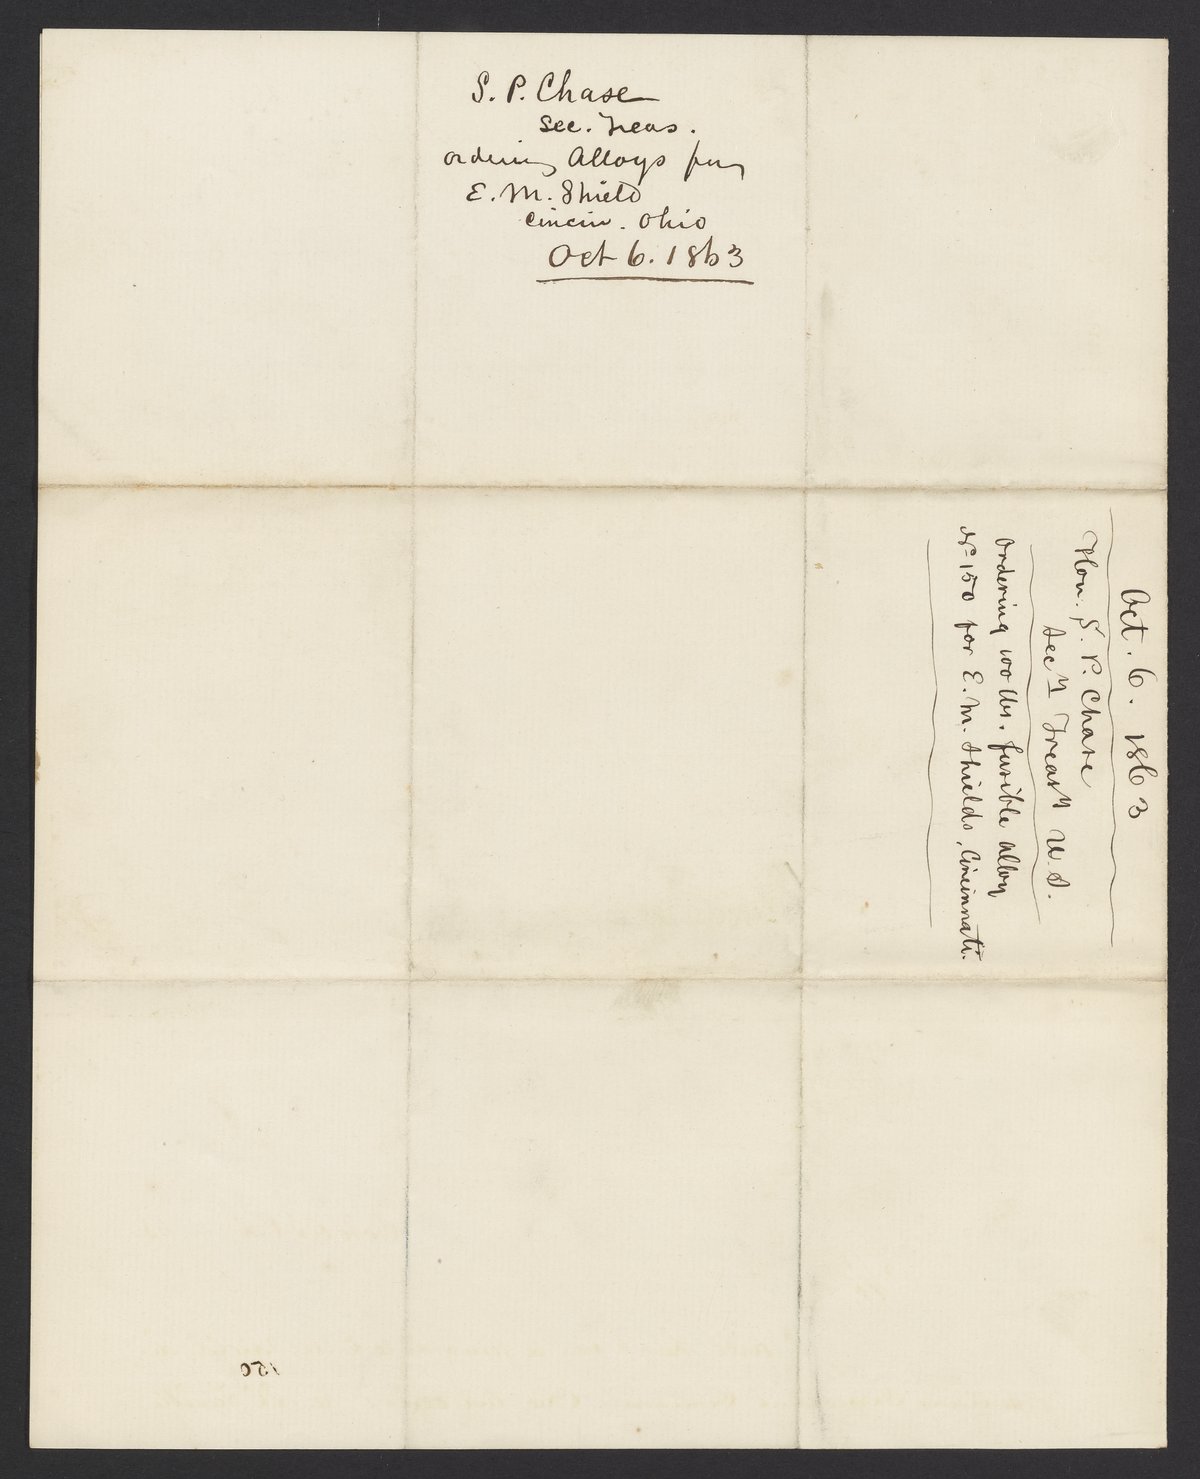 S. P. Chase
Sec. Treas.
ordering Alloys for
E. M. Shield
Cincin. Ohio
Oct 6. 1863
Oct. 6. 1863
Hon. S. P. Chase
Secy Treasy U. S.
Ordering 100 lbs. fusible alloy
No 150 for E. M. Shields, Cincinnati.
150